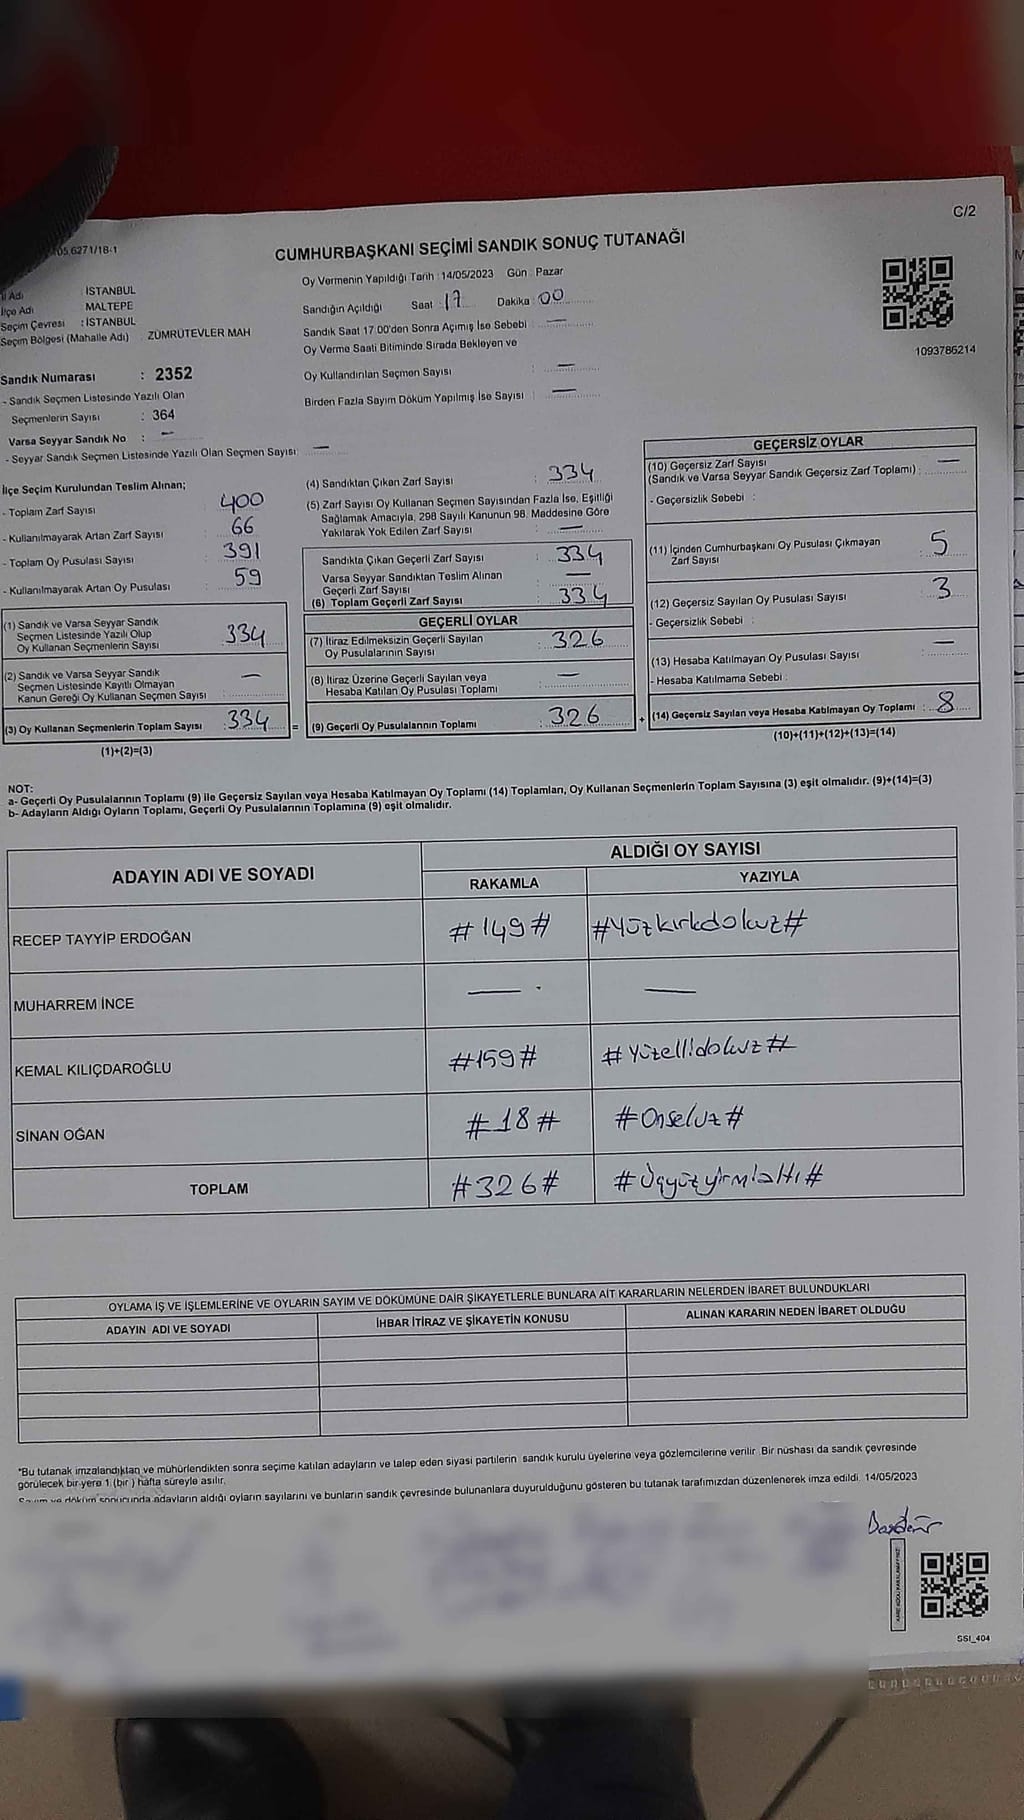 C/2
CUMHURBAŞKANI SEÇİMİ SANDIK SONUÇ TUTANAĞI
Adı İSTANBUL
İlçe Adı MALTEPE
Seçim Çevresi : İSTANBUL
Seçim Bölgesi (Mahalle Adı) ZÜMRÜTEVLER MAH
Sandık Numarası : 2352
- Sandık Seçmen Listesinde Yazılı Olan
Seçmenlerin Sayısı : 364
Varsa Seyyar Sandık No : —
- Seyyar Sandık Seçmen Listesinde Yazılı Olan Seçmen Sayısı: —
Oy Vermenin Yapıldığı Tarih : 14/05/2023 Gün Pazar
Sandığın Açıldığı Saat : 17 Dakika : 00
Sandık Saat 17.00'den Sonra Açımış İse Sebebi : —
Oy Verme Saati Bitiminde Sırada Bekleyen ve
Oy Kullandırılan Seçmen Sayısı : —
Birden Fazla Sayım Döküm Yapılmış İse Sayısı : —
1093786214
İlçe Seçim Kurulundan Teslim Alınan;
- Toplam Zarf Sayısı : 400
- Kullanılmayarak Artan Zarf Sayısı : 66
- Toplam Oy Pusulası Sayısı : 391
- Kullanılmayarak Artan Oy Pusulası : 59
(1) Sandık ve Varsa Seyyar Sandık
Seçmen Listesinde Yazılı Olup
Oy Kullanan Seçmenlerin Sayısı : 334
(2) Sandık ve Varsa Seyyar Sandık
Seçmen Listesinde Kayıtlı Olmayan
Kanun Gereği Oy Kullanan Seçmen Sayısı : —
(3) Oy Kullanan Seçmenlerin Toplam Sayısı : 334 =
(1)+(2)=(3)
(4) Sandıktan Çıkan Zarf Sayısı : 334
(5) Zarf Sayısı Oy Kullanan Seçmen Sayısından Fazla İse, Eşitliği
Sağlamak Amacıyla, 298 Sayılı Kanunun 98. Maddesine Göre
Yakılarak Yok Edilen Zarf Sayısı : —
Sandıkta Çıkan Geçerli Zarf Sayısı : 334
Varsa Seyyar Sandıktan Teslim Alınan
Geçerli Zarf Sayısı : —
(6) Toplam Geçerli Zarf Sayısı : 334
GEÇERLİ OYLAR
(7) İtiraz Edilmeksizin Geçerli Sayılan
Oy Pusulalarının Sayısı : 326
(8) İtiraz Üzerine Geçerli Sayılan veya
Hesaba Katılan Oy Pusulası Toplamı : —
(9) Geçerli Oy Pusulalarının Toplamı : 326 +
GEÇERSİZ OYLAR
(10) Geçersiz Zarf Sayısı
(Sandık ve Varsa Seyyar Sandık Geçersiz Zarf Toplamı) : —
- Geçersizlik Sebebi :
(11) İçinden Cumhurbaşkanı Oy Pusulası Çıkmayan
Zarf Sayısı : 5
(12) Geçersiz Sayılan Oy Pusulası Sayısı : 3
- Geçersizlik Sebebi :
(13) Hesaba Katılmayan Oy Pusulası Sayısı : —
- Hesaba Katılmama Sebebi :
(14) Geçersiz Sayılan veya Hesaba Katılmayan Oy Toplamı : 8
(10)+(11)+(12)+(13)=(14)
NOT:
a- Geçerli Oy Pusulalarının Toplamı (9) ile Geçersiz Sayılan veya Hesaba Katılmayan Oy Toplamı (14) Toplamları, Oy Kullanan Seçmenlerin Toplam Sayısına (3) eşit olmalıdır. (9)+(14)=(3)
b- Adayların Aldığı Oyların Toplamı, Geçerli Oy Pusulalarının Toplamına (9) eşit olmalıdır.
ADAYIN ADI VE SOYADI ALDIĞI OY SAYISI
RAKAMLA YAZIYLA
RECEP TAYYİP ERDOĞAN #149# #Yüzkırkdokuz#
MUHARREM İNCE — —
KEMAL KILIÇDAROĞLU #159# #Yüzellidokuz#
SİNAN OĞAN #18# #Onsekiz#
TOPLAM #326# #Üçyüzyirmialtı#
OYLAMA İŞ VE İŞLEMLERİNE VE OYLARIN SAYIM VE DÖKÜMÜNE DAİR ŞİKAYETLERLE BUNLARA AİT KARARLARIN NELERDEN İBARET BULUNDUKLARI
ADAYIN ADI VE SOYADI İHBAR İTİRAZ VE ŞİKAYETİN KONUSU ALINAN KARARIN NEDEN İBARET OLDUĞU
*Bu tutanak imzalandıktan ve mühürlendikten sonra seçime katılan adayların ve talep eden siyasi partilerin sandık kurulu üyelerine veya gözlemcilerine verilir. Bir nüshası da sandık çevresinde
görülecek bir yere 1 (bir) hafta süreyle asılır.
Sayım ve döküm sonucunda adayların aldığı oyların sayılarını ve bunların sandık çevresinde bulunanlara duyurulduğunu gösteren bu tutanak tarafımızdan düzenlenerek imza edildi. 14/05/2023
SSI_404